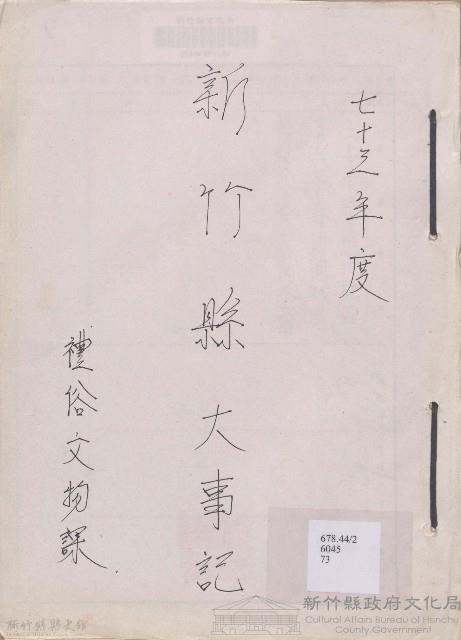 七十三年度
新竹縣大事記
禮俗文物課.
678.44/2
6045
73
新竹縣政府文化局
Cultural Affairs Bureau of Hsinchu
County Government
新竹縣縣史館